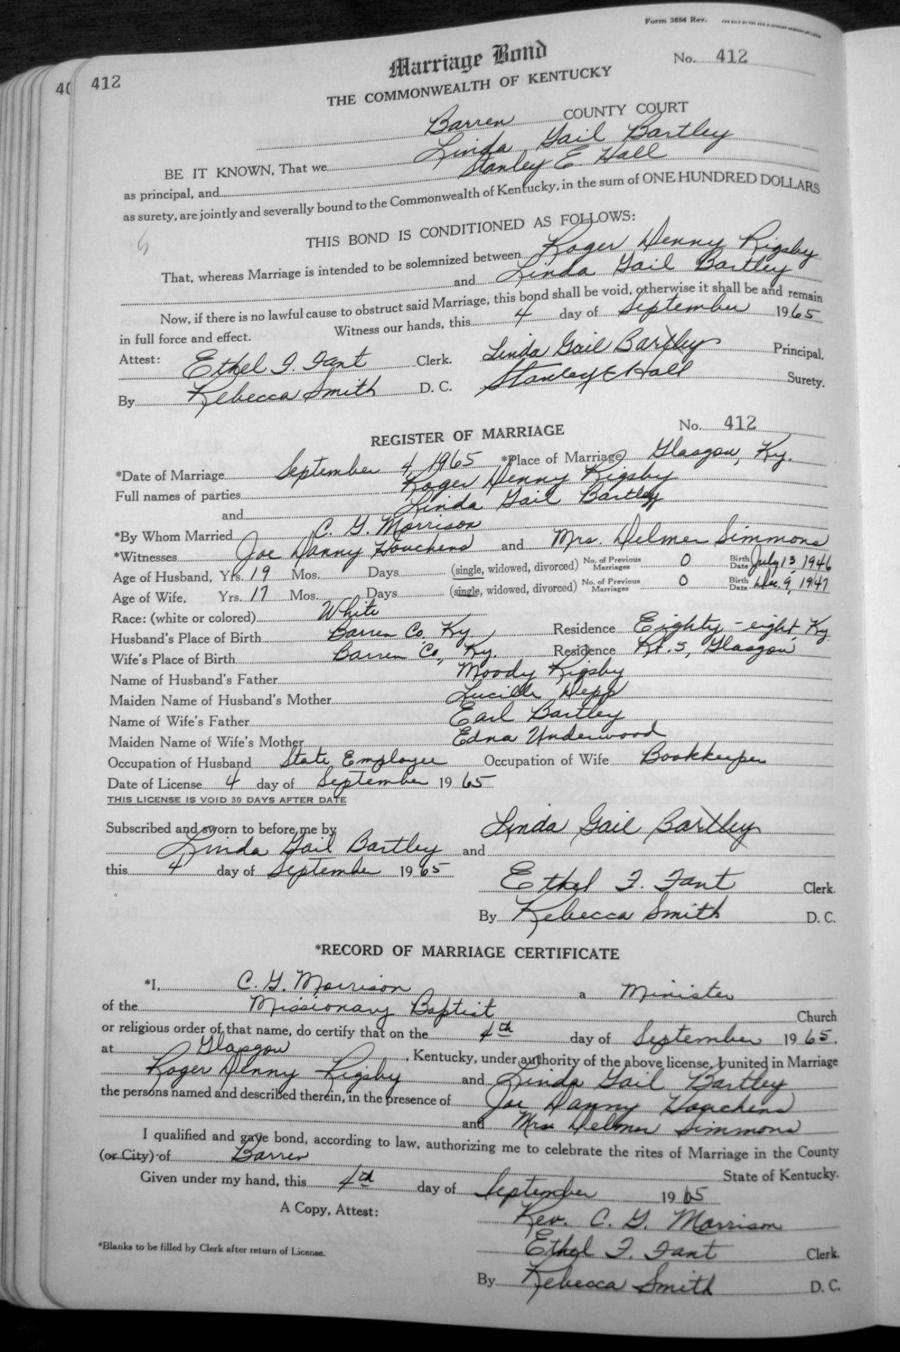 Form 3656 Rev.
412
Marriage Bond No. 412
THE COMMONWEALTH OF KENTUCKY
Barren COUNTY COURT
BE IT KNOWN, That we Linda Gail Bartley
as principal, and Stanley E. Hall
as surety, are jointly and severally bound to the Commonwealth of Kentucky, in the sum of ONE HUNDRED DOLLARS
THIS BOND IS CONDITIONED AS FOLLOWS:
That, whereas Marriage is intended to be solemnized between Roger Denny Rigsby
and Linda Gail Bartley
Now, if there is no lawful cause to obstruct said Marriage, this bond shall be void, otherwise it shall be and remain
in full force and effect. Witness our hands, this 4 day of September 1965
Attest: Ethel F. Fant Clerk. Linda Gail Bartley Principal.
By Rebecca Smith D. C. Stanley E Hall Surety.
REGISTER OF MARRIAGE No. 412
*Date of Marriage September 4, 1965 *Place of Marriage Glasgow, Ky.
Full names of parties Roger Denny Rigsby
and Linda Gail Bartley
*By Whom Married C. G. Morrison
*Witnesses Joe Danny Houchens and Mrs. Delmer Simmons
Age of Husband, Yrs. 19 Mos. Days (single, widowed, divorced) No. of Previous Marriages 0 Birth Date July 13, 1946
Age of Wife, Yrs. 17 Mos. Days (single, widowed, divorced) No. of Previous Marriages 0 Birth Date Dec. 9, 1947
Race: (white or colored) White
Husband's Place of Birth Barren Co. Ky. Residence Eighty-eight, Ky.
Wife's Place of Birth Barren Co, Ky. Residence Rt. 5, Glasgow
Name of Husband's Father Moody Rigsby
Maiden Name of Husband's Mother Lucille Depp
Name of Wife's Father Earl Bartley
Maiden Name of Wife's Mother Edna Underwood
Occupation of Husband State Employee Occupation of Wife Bookkeeper
Date of License 4 day of September 1965
THIS LICENSE IS VOID 30 DAYS AFTER DATE
Subscribed and sworn to before me by Linda Gail Bartley
Linda Gail Bartley and
this 4 day of September 1965
Ethel F. Fant Clerk.
By Rebecca Smith D. C.
*RECORD OF MARRIAGE CERTIFICATE
*I, C. G. Morrison a Minister
of the Missionary Baptist Church
or religious order of that name, do certify that on the 4th day of September 1965,
at Glasgow, Kentucky, under authority of the above license, I united in Marriage
Roger Denny Rigsby and Linda Gail Bartley
the persons named and described therein, in the presence of Joe Danny Houchens
and Mrs Delmer Simmons
I qualified and gave bond, according to law, authorizing me to celebrate the rites of Marriage in the County
(or City) of Barren State of Kentucky.
Given under my hand, this 4th day of September 1965
A Copy, Attest: Rev. C. G. Morrison
*Blanks to be filled by Clerk after return of License. Ethel F. Fant Clerk.
By Rebecca Smith D. C.